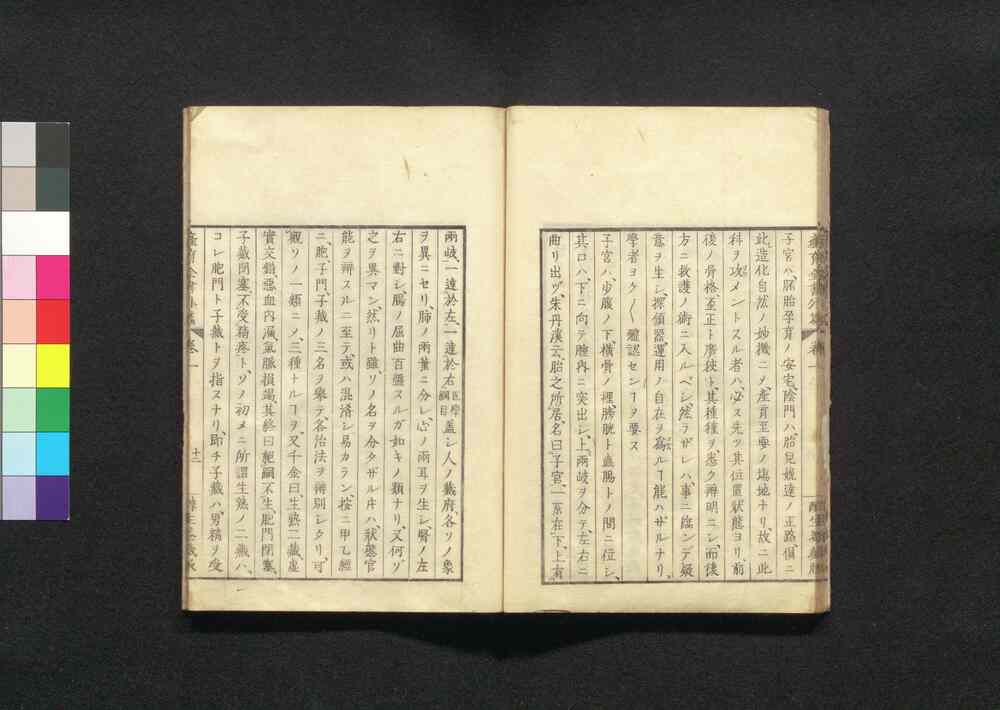 子宮ハ、胚胎孕育ノ安宅、陰門ハ、胎兒娩達ノ正路、倶ニ
此造化自然ノ妙機ニメ、産育至要ノ塲地ナリ、故ニ此
科ヲ攻メントスル者ハ、必ス先ツ其位置狀態ヨリ、前
後ノ骨格、至正ト廣狹ト、其種種ヲ悉ク辨明ニシ、而後
方ニ救護ノ術ニ入ルベシ、然ラザレハ、事ニ臨ンデ疑
意ヲ生シ、探頷器運用ノ自在ヲ爲ルヿ能ハザルナリ、
學者ヨク〳〵體認センヿヲ要ス
子宮ハ、少腹ノ下、橫骨ノ裡、膀胱ト直腸トノ間ニ位シ、
其口ハ、下ニ向テ膣內ニ突出シ、上ハ兩岐ヲ分テ、左右ニ
曲リ出ヅ、朱丹溪云、胎之所居、名曰子宮、一系在下、上有
兩岐、一達於左、一達於右 醫學綱目 蓋シ人ノ藏府、各ソノ象
ヲ異ニセリ、肺ノ兩葉ニ分レ、心ノ兩耳ヲ生シ、腎ノ左
右ニ對シ、腸ノ屈曲百盤スルガ如キノ類ナリ、又何ゾ
之ヲ異マン、然リト雖、ソノ名ヲ分タザル片ハ、狀態官
能ヲ辨スルニ至テ、或ハ混淆シ易カラン、按ニ甲乙經
ニ、胞、子門、子藏ノ三名ヲ擧テ、各治法ヲ辨別シタリ、可
觀ソノ一類ニメ、三種ナルヿヲ、又千金曰、生熟二藏虛
實交錯、惡血內漏、氣脈損竭、其終曰、胞嗣不生、胞門閉塞、
子藏閉塞、不受精疼ト、ソノ初メニ所謂生熟ノ二藏ハ、
コレ胞門ト子藏トヲ指スナリ、即チ子藏ハ、男精ヲ受
卷一
十二